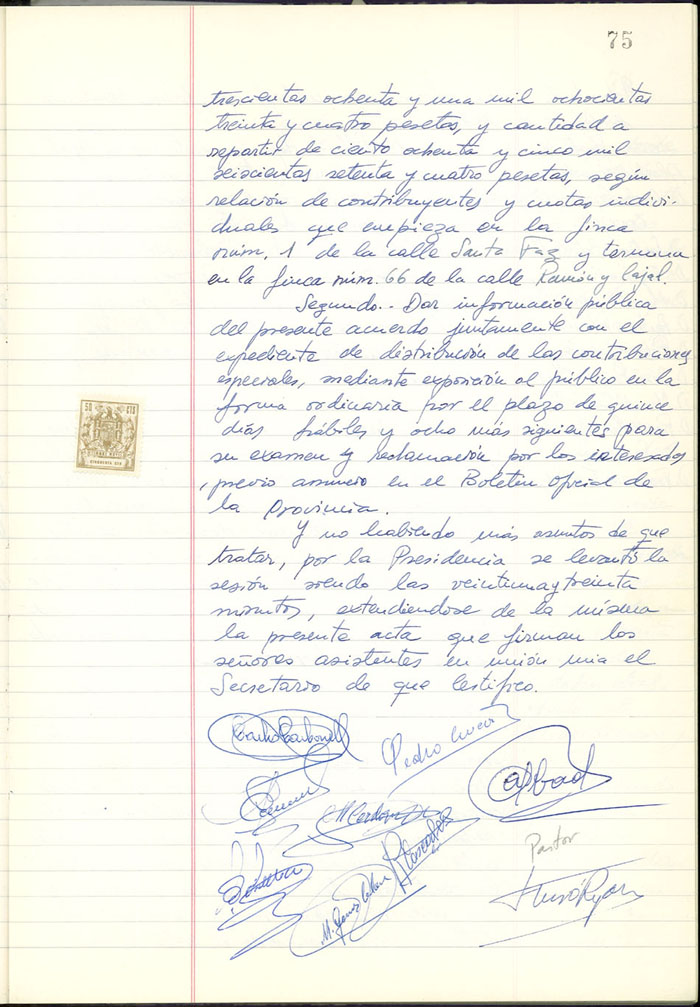 75
trescientas ochenta y una mil ochocientas
treinta y cuatro pesetas, y cantidad a
repartir de ciento ochenta y cinco mil
seiscientas setenta y cuatro pesetas, según
relación de contribuyentes y cuotas indivi-
duales que empieza en la finca
núm. 1 de la calle Santa Faz y termina
en la finca núm. 66 de la calle Ramón y Cajal.
Segundo.- Dar información pública
del presente acuerdo juntamente con el
expediente de distribución de las contribuciones
especiales, mediante exposición al público en la
forma ordinaria por el plazo de quince
días hábiles y ocho más siguientes para
su examen y reclamación por los interesados
, previo anuncio en el Boletín Oficial de
la Provincia.
Y no habiendo más asuntos de que
tratar, por la Presidencia se levantó la
sesión siendo las veintiuna y treinta
minutos, extendiendose de la misma
la presente acta que firman los
señores asistentes en unión mia el
Secretario de que certifico.
50 CTS
Pedro
Pastor